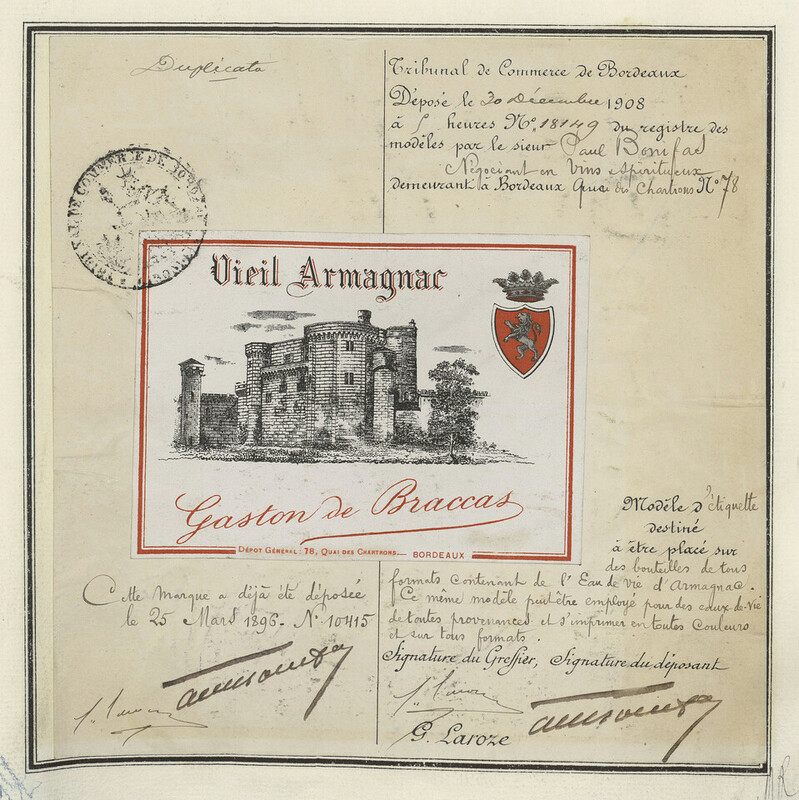 Duplicata
Tribunal de Commerce de Bordeaux
Déposé le 30 Décembre 1908
à 5 heures Nº 18149 du registre des
modèles par le sieur Paul Bonifas
Négociant en Vins Spiritueux
demeurant à Bordeaux Quai des Chartrons Nº 78
TRIBUNAL DE COMMERCE DE BORDEAUX
Vieil Armagnac
Gaston de Braccas
DÉPOT GÉNÉRAL : 78, QUAI DES CHARTRONS. BORDEAUX
Modèle d'étiquette
destiné
à être placé sur
des bouteilles de tous
formats contenant de l'Eau de vie d'Armagnac.
Ce même modèle peut être employé pour des eaux-de-Vie
de toutes provenances et s'imprimer en toutes Couleurs
et sur tous formats.
Cette marque a déjà été déposée
le 25 Mars 1896 - Nº 10415
Signature du Greffier, Signature du déposant
G. Laroze
MR